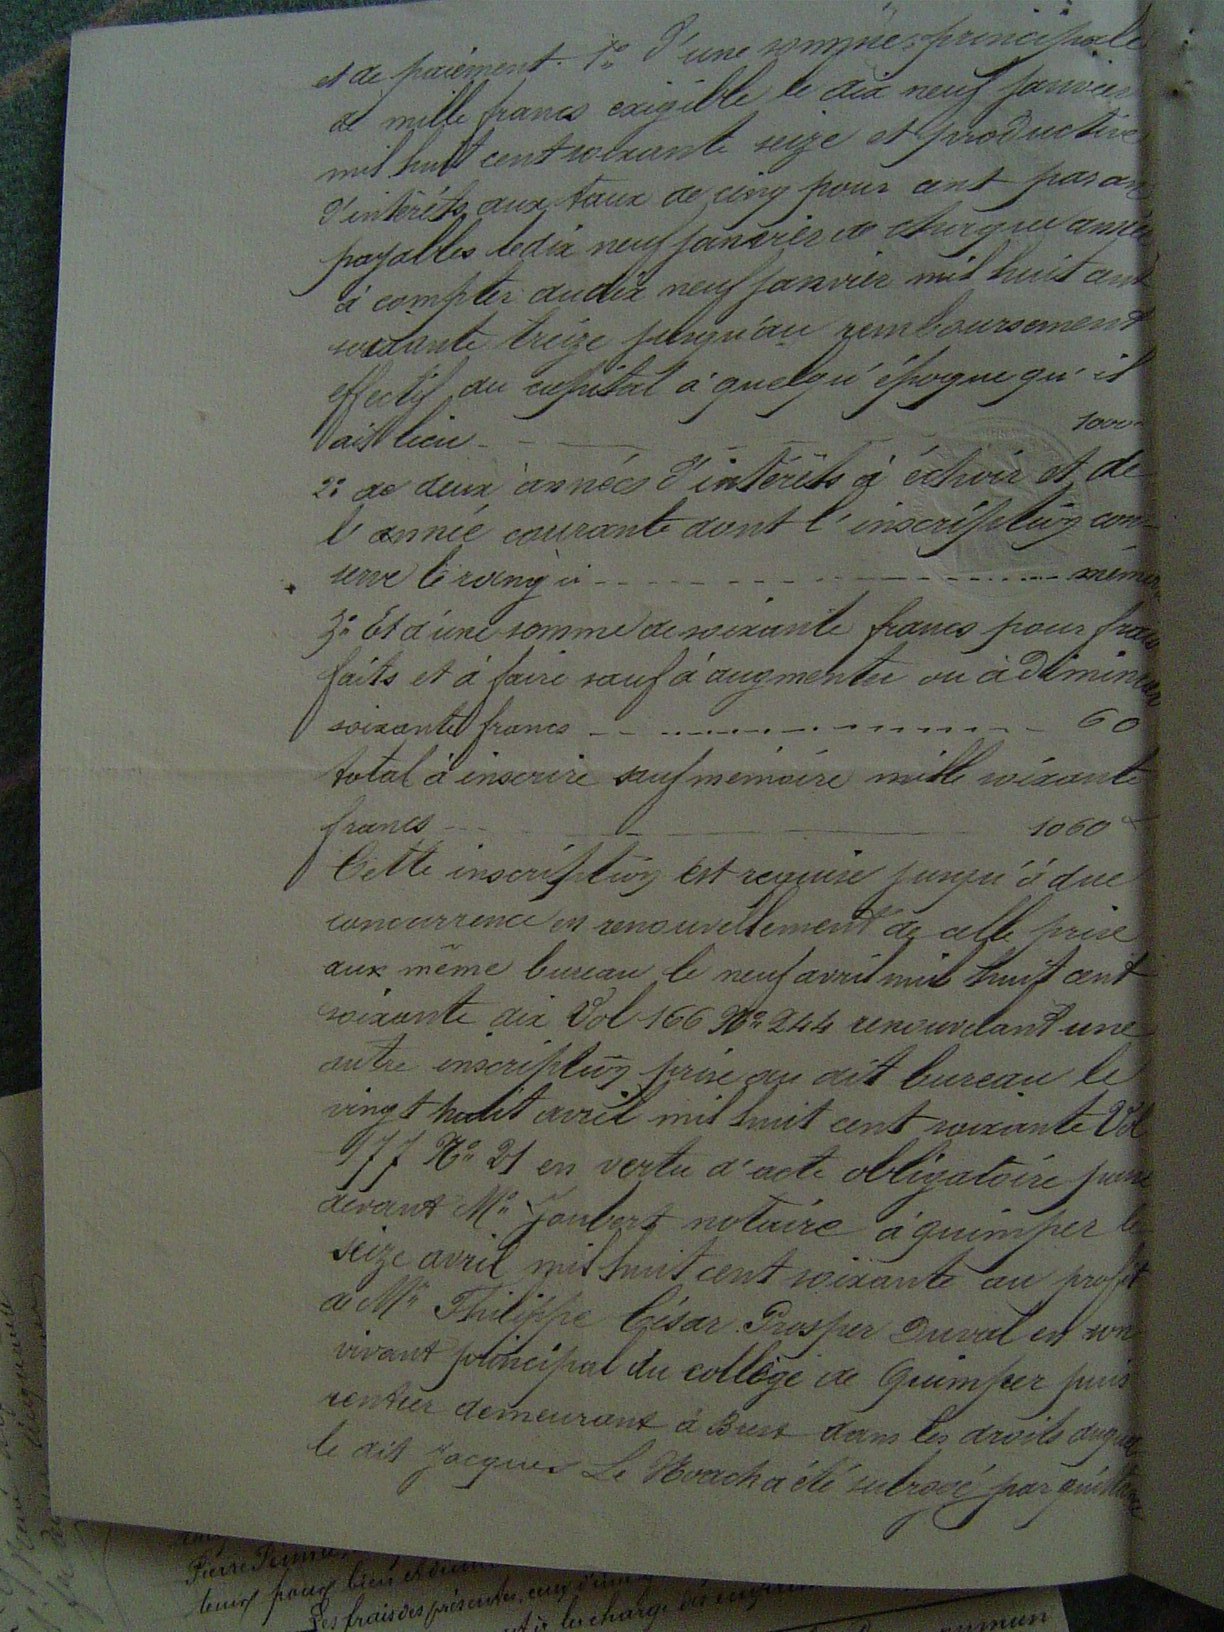 et de paiement. 1° d'une somme principale
de mille francs exigible le dix neuf janvier
mil huit cent soixante seize et productive
d'intérêts aux taux de cinq pour cent par an
payables le dix neuf janvier de chaque année
à compter du dix neuf janvier mil huit cent
soixante treize jusqu'au remboursement
effectif du capital à quelqu'époque qu'il
ait lieu 1000
2° de deux années d'intérêts à échoir et de
l'année courante dont l'inscription con-
serve le rang ci mémoire
3° Et d'une somme de soixante francs pour frais
faits et à faire sauf à augmenter ou à diminuer
soixante francs 60
total à inscrire sauf mémoire mille soixante
francs 1060
Cette inscription est requise jusqu'à due
concurrence en renouvellement de celle prise
aux même bureau le neuf avril mil huit cent
soixante dix Vol 166 N° 244 renouvelant une
autre inscription prise au dit bureau le
vingt huit avril mil huit cent soixante Vol
N° 21 en vertu d'acte obligatoire passé
devant Me Joubert notaire à quimper le
seize avril mil huit cent soixante au profit
de Mr Philippe César Prosper Duval en son
vivant principal du collège de Quimper puis
rentier demeurant à Brest dans les droits duquel
le dit Jacques Le Noach a été subrogé par quittance
Pierre
leurs pour bien et
Les frais des présentes,
les charge des